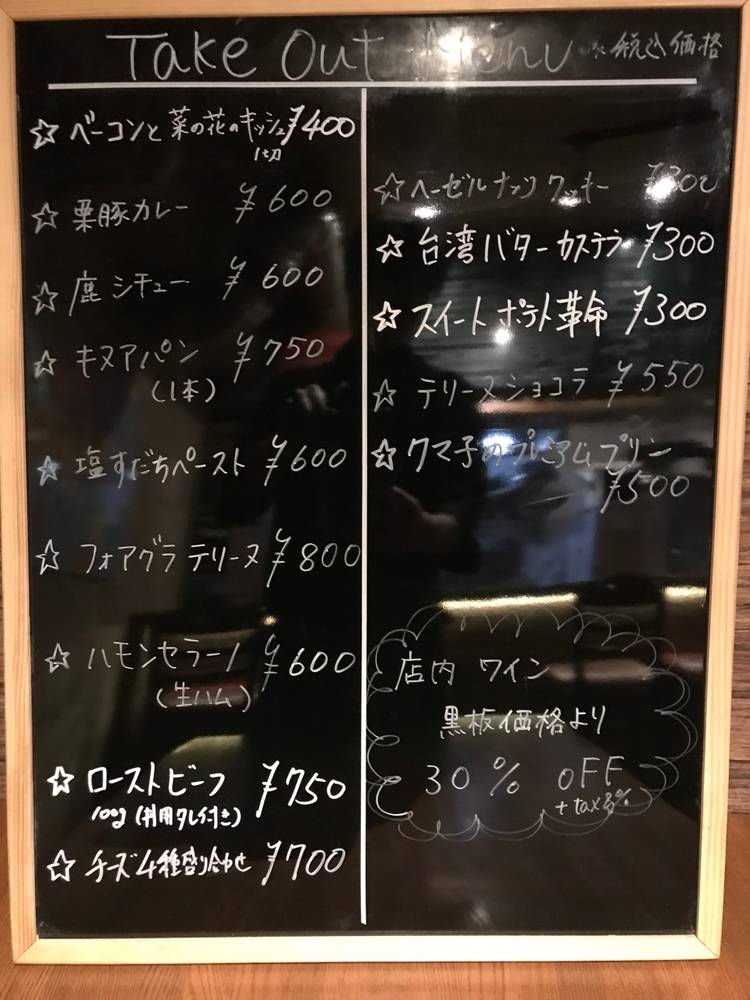 Take Out Menu ※税込価格
☆ ベーコンと菜の花のキッシュ ¥400
1切
☆ 栗豚カレー ¥600
☆ 鹿シチュー ¥600
☆ キヌアパン ¥750
(1本)
☆ 塩すだちペースト ¥600
☆ フォアグラテリーヌ ¥800
☆ ハモンセラーノ ¥600
(生ハム)
☆ ローストビーフ ¥750
100g (専用タレ付き)
☆ チーズ4種盛り合わせ ¥700
☆ ヘーゼルナッツクッキー ¥300
☆ 台湾バターカステラ ¥300
☆ スイートポテト革命 ¥300
☆ テリーヌショコラ ¥550
☆ クマ子のプレミアムプリン
¥500
店内 ワイン
黒板価格より
30% OFF
+tax8%